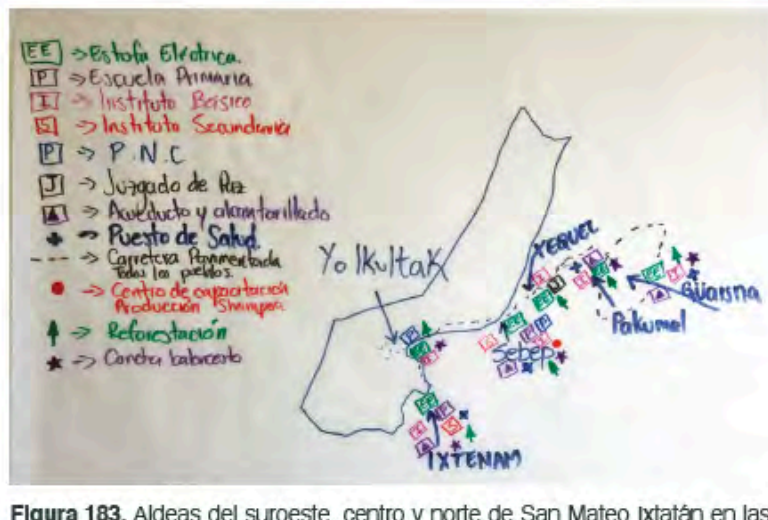 EE -> Estufa Eléctrica.
P -> Escuela Primaria
I -> Instituto Básico
S -> Instituto Secundaria
P -> P.N.C
J -> Juzgado de Paz
-> Acueducto y alcantarillado
-> Puesto de Salud.
--- -> Carretera Pavimentada
Todos los pueblos.
-> Centro de capacitación
Producción Shampoo
-> Reforestación
-> Cancha
Yolkultak
XEQUEL
Güaisna
Pakumal
Sebep
IXTENAM
Figura 183. Aldeas del suroeste, centro y norte de San Mateo Ixtatán en las